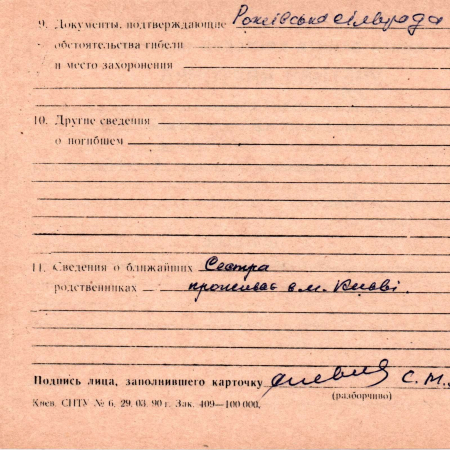 9. Документы, подтверждающие Рокитівська сільрада
обстоятельства гибели
и место захоронения
10. Другие сведения
о погибшем
11. Сведения о ближайших Сестра
родственниках проживає в м. Києві.
Подпись лица, заполнившего карточку С. М.
(разборчиво)
Киев. СПТУ № 6. 29. 03. 90 г. Зак. 409—100 000.